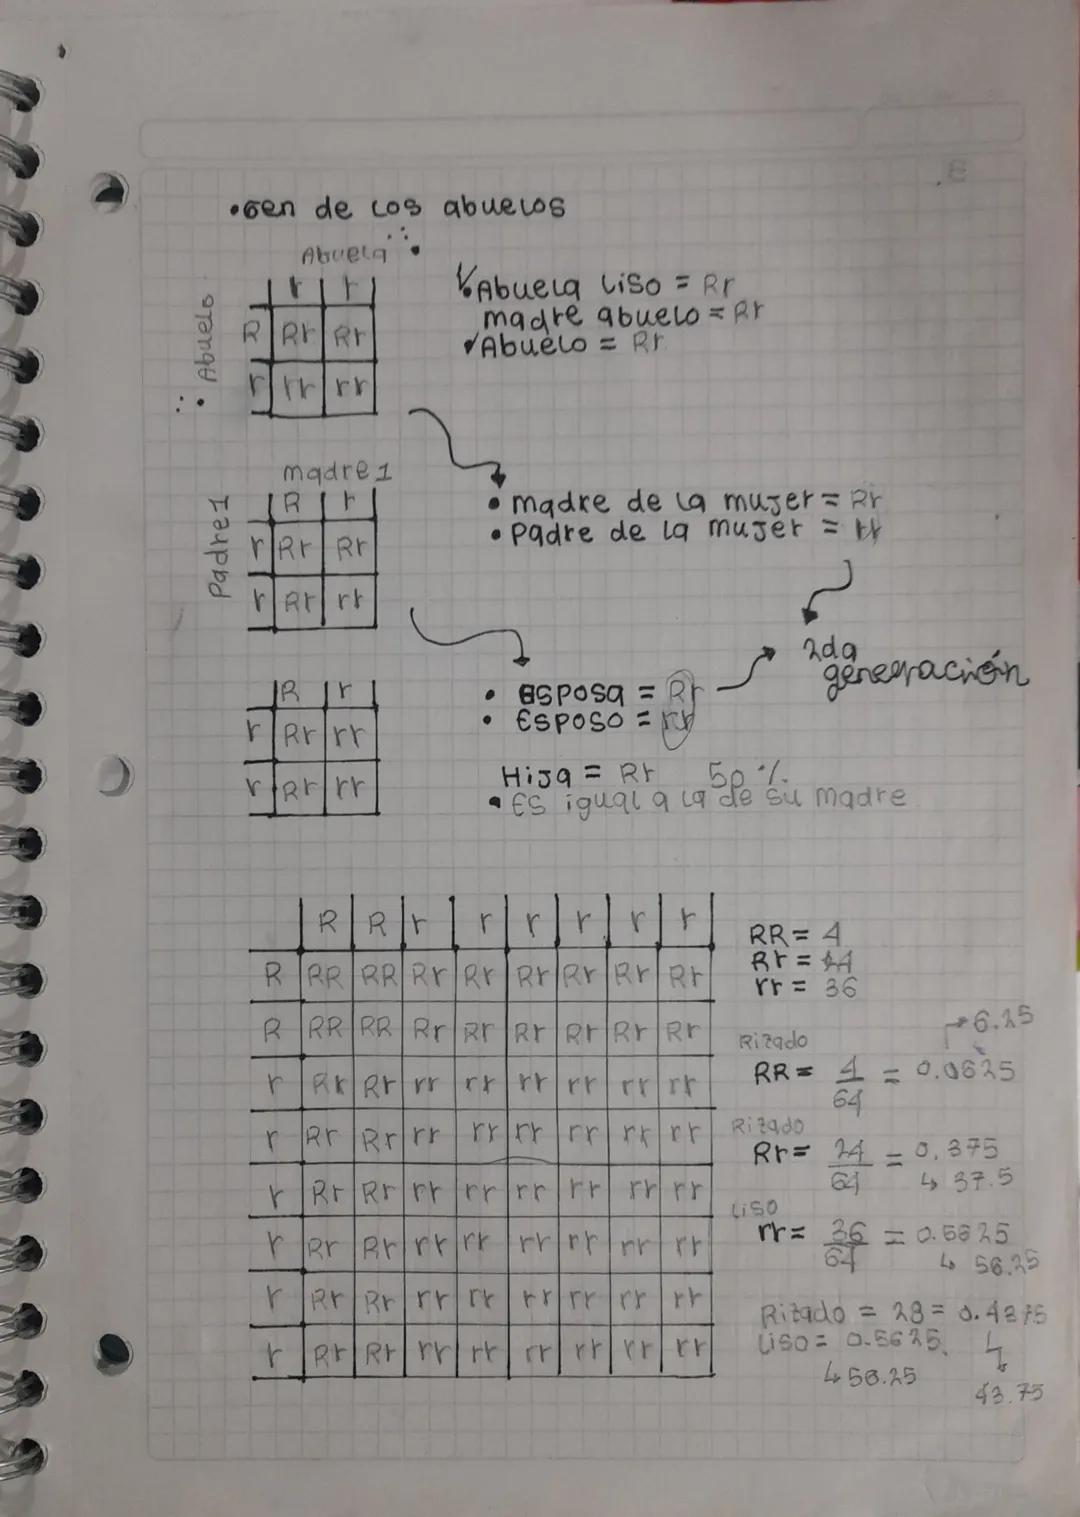 •Gen de los abuelos
Abuela
r r
Abuelo
R Rr Rr
r rr rr
Abuela liso = Rr
madre abuelo = Rr
Abuelo = Rr
madre 1
R r
Padre 1
r Rr Rr
r Rr rr
• madre de la mujer = Rr
• Padre de la mujer = rr
2da
generación
R r
r Rr rr
r Rr rr
• Esposa = Rr
• Esposo = rr
Hija = Rr 50 %.
• Es igual a la de su madre
R R r r r r r r
R RR RR Rr Rr Rr Rr Rr Rr
R RR RR Rr Rr Rr Rr Rr Rr
r Rr Rr rr rr rr rr rr rr
r Rr Rr rr rr rr rr rr rr
r Rr Rr rr rr rr rr rr rr
r Rr Rr rr rr rr rr rr rr
r Rr Rr rr rr rr rr rr rr
r Rr Rr rr rr rr rr rr rr
RR = 4
Rr = 24
rr = 36
Rizado
6.25
RR = 4/64 = 0.0625
Rizado
Rr = 24/64 = 0.375
↳ 37.5
Liso
rr = 36/64 = 0.5625
↳ 56.25
Rizado = 28 = 0.4375
Liso = 0.5625
↳ 56.25
43.75